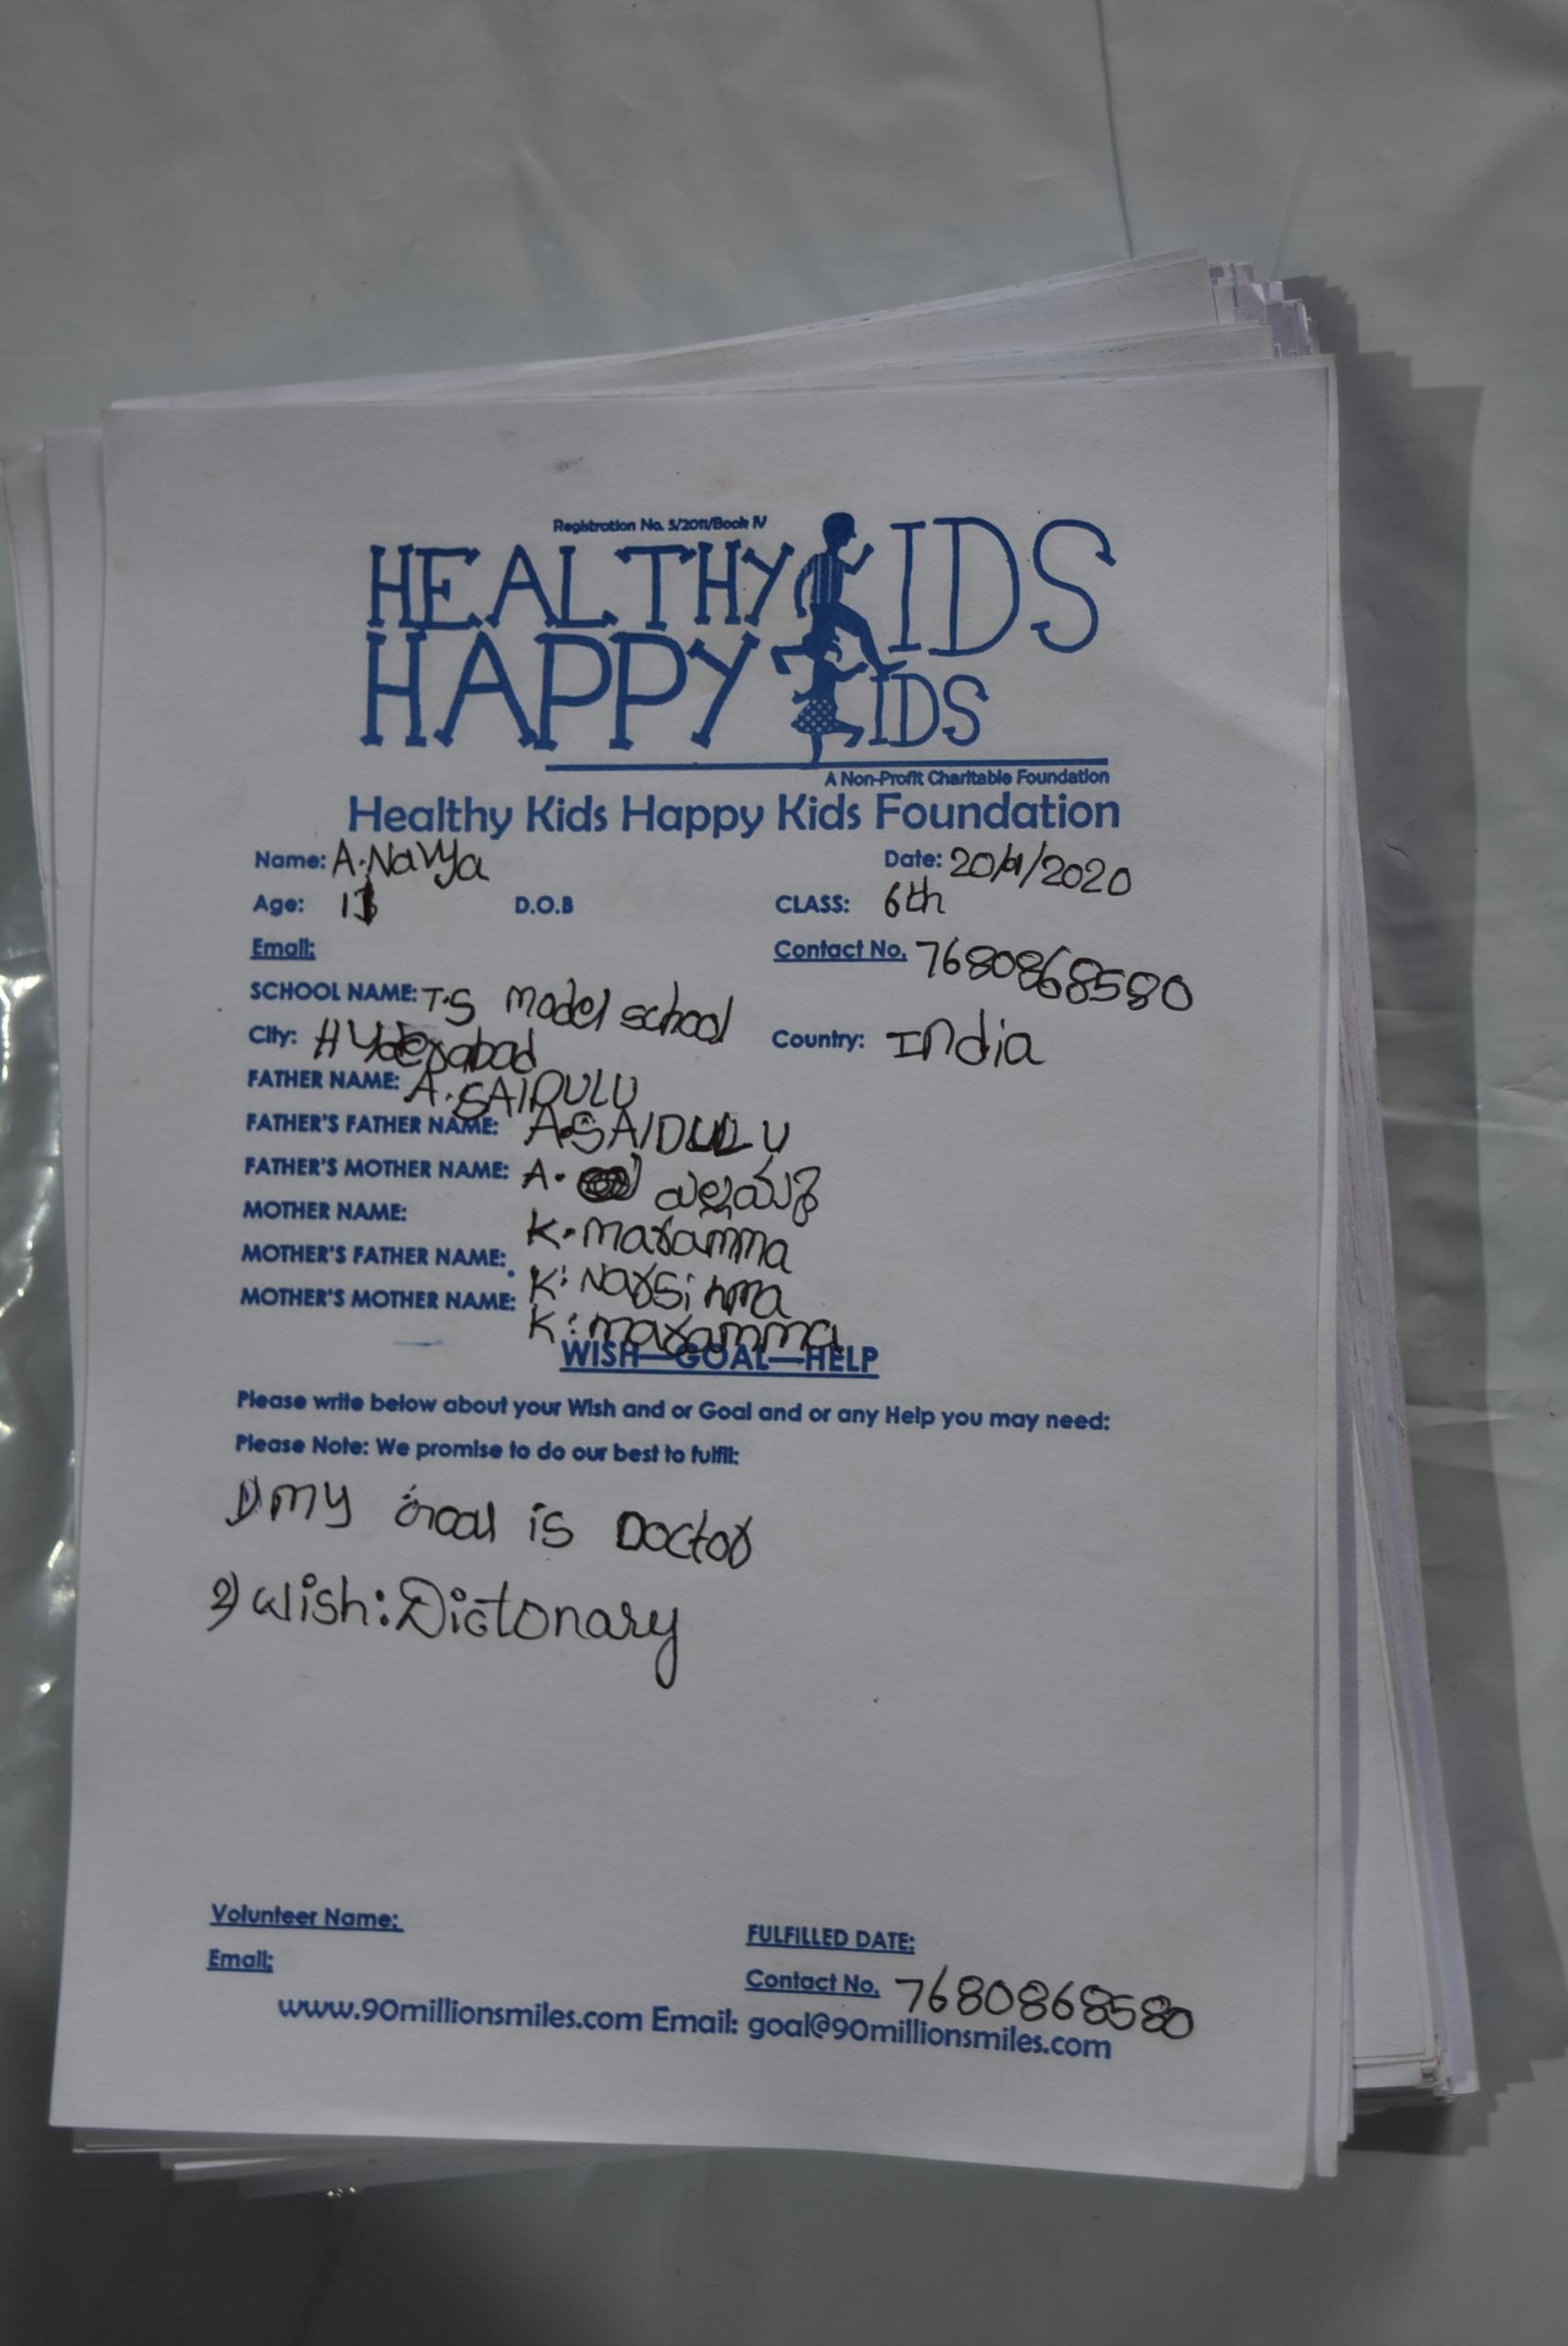 Registration No. 5/2011/Book IV
HEALTHY KIDS
HAPPY KIDS
A Non-Profit Charitable Foundation
Healthy Kids Happy Kids Foundation
Name: A. Navya Date: 20/01/2020
Age: D.O.B CLASS: 6th
Email: Contact No. 7680868580
SCHOOL NAME: T.S model school
City: Hyderabad Country: India
FATHER NAME: A. SAIDULU
FATHER'S FATHER NAME: A.SAIDULU
FATHER'S MOTHER NAME: A. యల్లమ్మ
MOTHER NAME: K. maramma
MOTHER'S FATHER NAME: K: Narsihma
MOTHER'S MOTHER NAME: K: maramma
WISH—GOAL—HELP
Please write below about your Wish and or Goal and or any Help you may need:
Please Note: We promise to do our best to fulfil:
1) my Goal is Doctor
2) wish: Dictonary
Volunteer Name: FULFILLED DATE:
Email: Contact No. 7680868580
www.90millionsmiles.com Email: goal@90millionsmiles.com